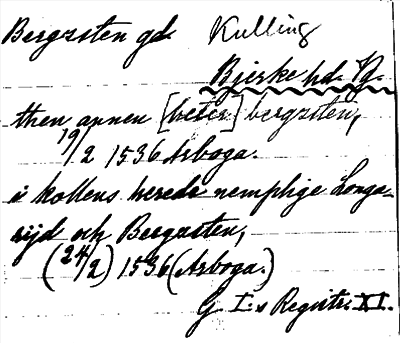 Bergsten gd. Kulling
Bjerke hd. Vg.
then annen [heter] bergsten,
19/2 1536 Arboga.
i kollens herede nemplige Longa-
sijd och Bergasten,
(24/2) 1536 (Arboga.)
G. I:s Registr. XI.